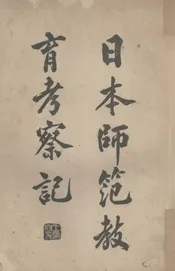 日本師範教
育考察記